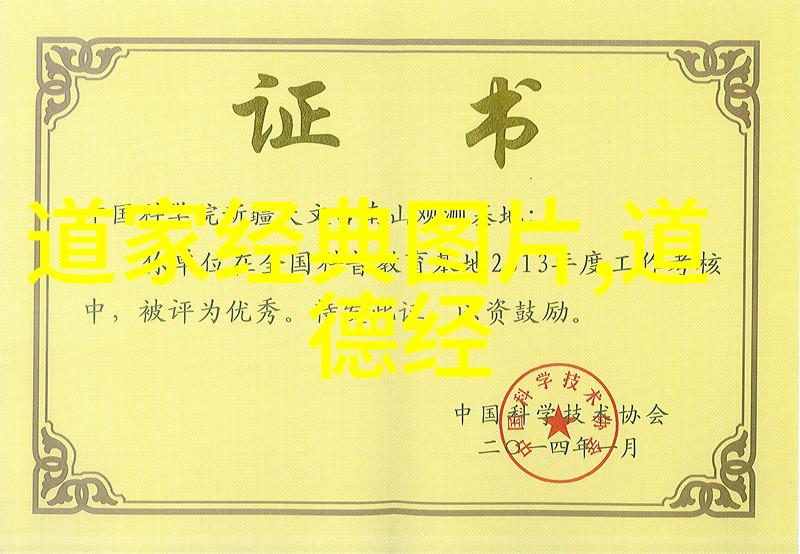 证书
中国科学院新疆天文台南山观测基地：
你单位在全国科普教育基地2013年度工作考核
中，被评为优秀。特发此证，以资鼓励。
道家经典图片,道
德经
中国科学技术协会
二〇一四年一月
中国科学技术协会